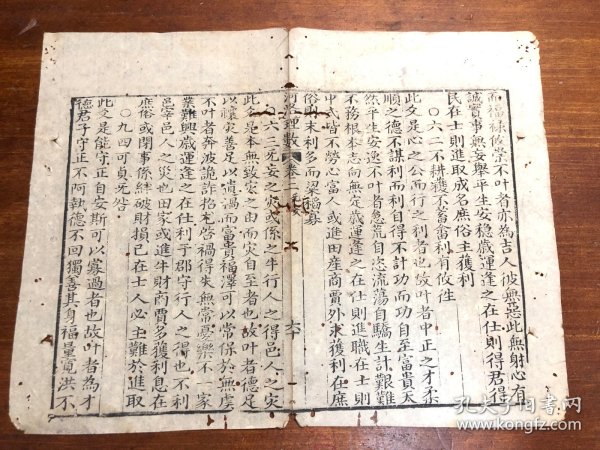 而福祿攸崇不叶者亦為吉人彼無惡此無射心有
誠實事無妄舉平生安穩歲運逢之在仕則得君得
民在士則進取成名庶俗主獲利
〇六二不耕獲不菑畬利有攸往
此爻是心之公而行之利者也故叶者中正之才柔
順之德不謀利而利自得不計功而功自至富貴天
然平生安逸不叶者怠荒自恣流蕩自驕生計艱難
不務根本志向無定歲運逢之在仕則進職在士則
中式皆不勞心富人或進田產商賈外求獲利在庶
俗則末利多而梁稻寡
河理數 卷二 六十
〇六三無妄之災或係之牛行人之得邑人之災
此爻是本無致災之由而災自至者也故叶者德足
以禳災善足以消禍而富貴福澤可以常保於無虞
不叶者奔波詭詐招尤啓禍得失無常憂樂不一家
業難興歲運逢之在仕利于郡守行人之得也不利
邑宰邑人之災也田舍或進牛財商賈多獲利息在
庶俗或閒事係絆破財損己在士人必主難於進取
〇九四可貞旡咎
此爻是能守正自安斯可以寡過者也故叶者為才
德君子守正不阿執德不回獨善其身福量寬洪不
孔夫子旧书网
www.kongfz.com